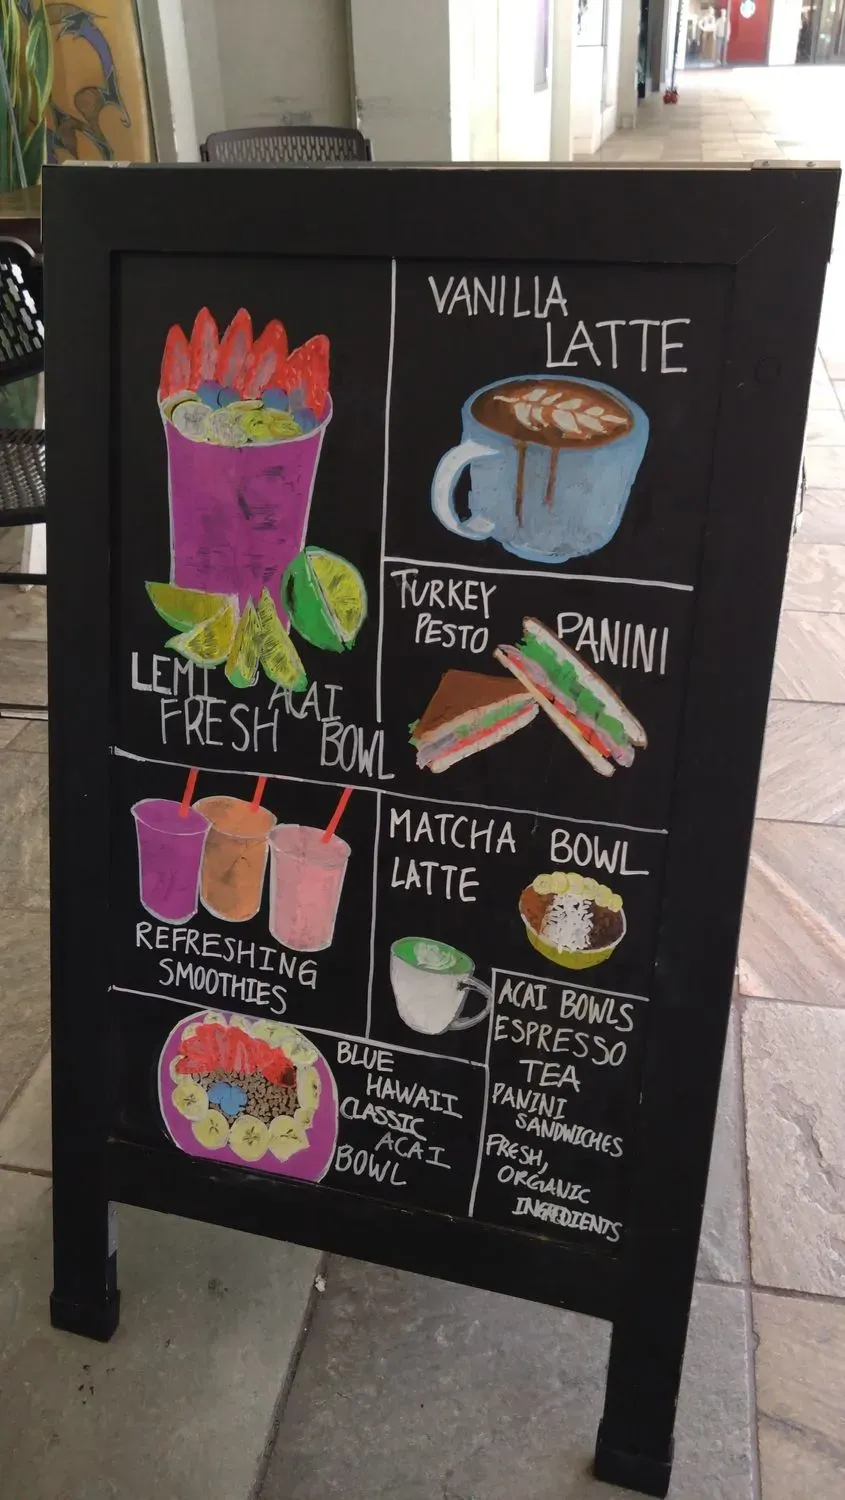 VANILLA
LATTE
LEMI ACAI
FRESH BOWL
TURKEY
PESTO PANINI
REFRESHING
SMOOTHIES
MATCHA BOWL
LATTE
BLUE
HAWAII
CLASSIC
ACAI
BOWL
ACAI BOWLS
ESPRESSO
TEA
PANINI
SANDWICHES
FRESH,
ORGANIC
INGREDIENTS